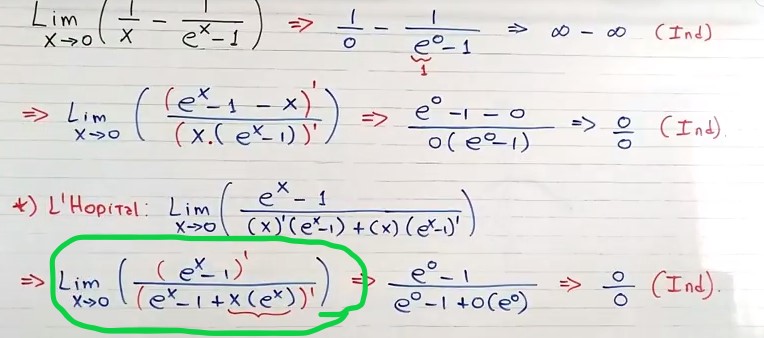 Lim x→0 ( 1/x - 1/(eˣ-1) ) ⇒ 1/0 - 1/(e⁰-1) ⇒ ∞ - ∞ (Ind)
1
⇒ Lim x→0 ( (eˣ-1-x)' / (x.(eˣ-1))' ) ⇒ (e⁰-1-0) / 0(e⁰-1) ⇒ 0/0 (Ind).
*) L'Hopital: Lim x→0 ( (eˣ-1) / ((x)'(eˣ-1)+(x)(eˣ-1)') )
⇒ Lim x→0 ( (eˣ-1)' / (eˣ-1+x(eˣ))' ) ⇒ (e⁰-1) / (e⁰-1+0(e⁰)) ⇒ 0/0 (Ind).